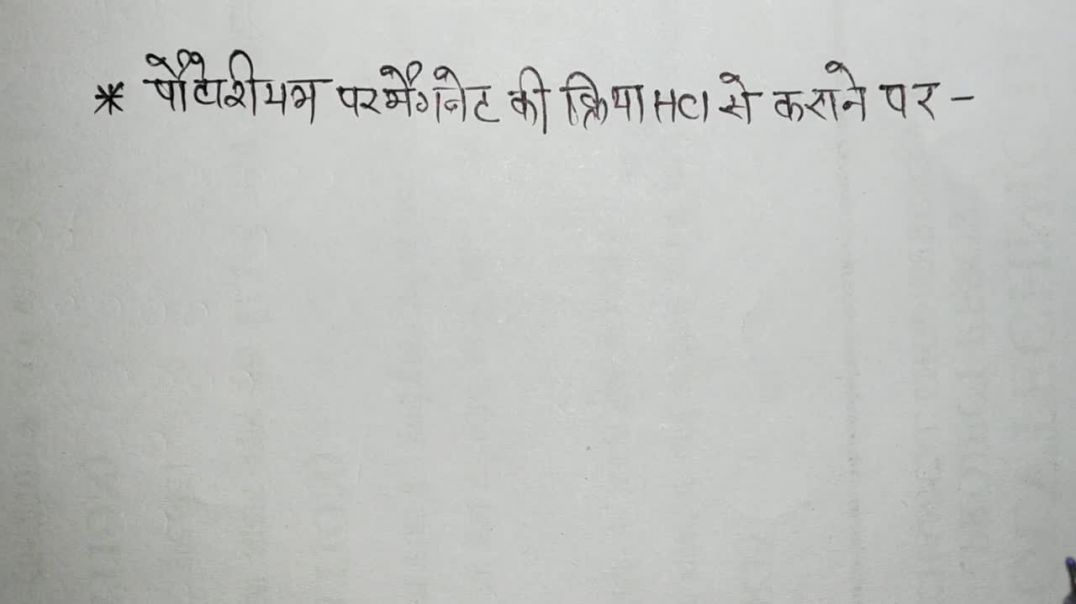 * पोटेशीयम परमैंगनेट की क्रिया HCl से कराने पर -